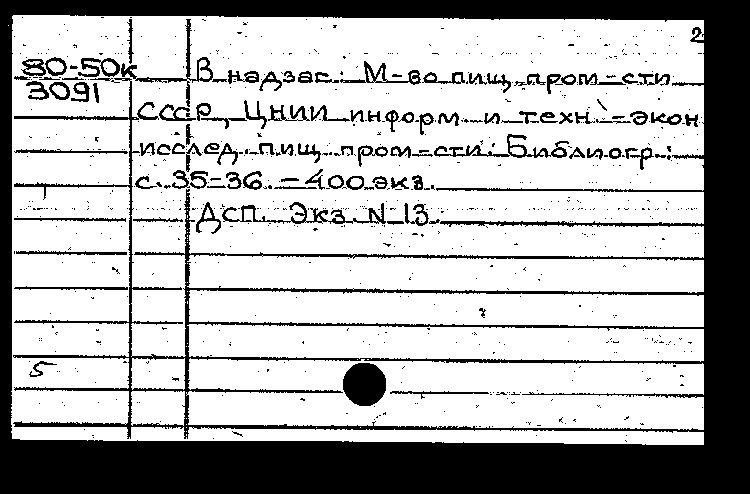 2
80-50к В надзаг.: М-во пищ. пром-сти
3091
СССР, ЦНИИ информ. и техн.-экон
исслед. пищ. пром-сти. Библиогр.:
с. 35-36. – 400 экз.
ДСП. Экз. N 13.
5